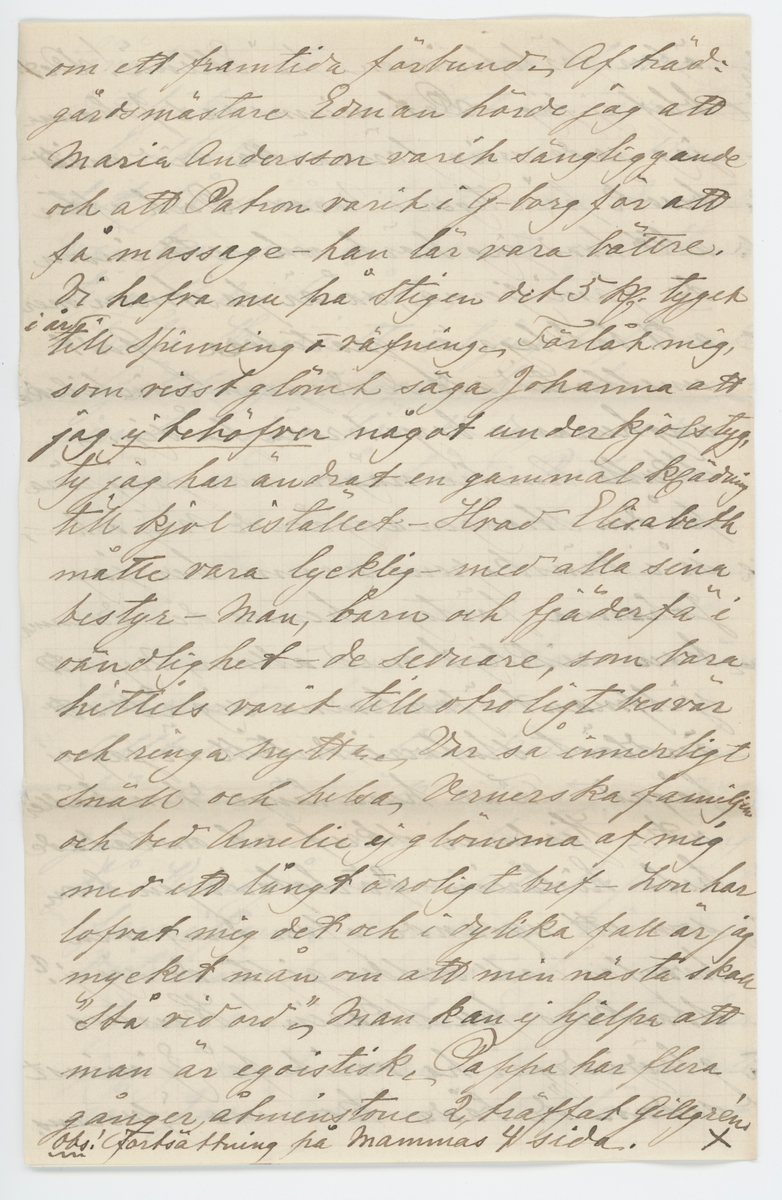 om ett framtida förbund. Af träd-
gårdsmästare Edman hörde jag att
Maria Andersson varit sängliggande
och att Patron varit i G-borg för att
få massage – han lär vara bättre.
Vi hafva nu på Stigen det 5 kg. tyget
i år
till spinning o väfning. Förlåt mig,
som visst glömt säga Johanna att
jag ej behöfver något underkjolstyg,
ty jag har ändrat en gammal klädning
till kjol istället – Hvad Elisabeth
måtte vara lycklig – med alla sina
bestyr – Man, barn och fjäderfä i
oändlighet – de sednare, som bara
hittils varit till otroligt besvär
och ringa nytta. Var så innerligt
snäll och helsa Vernerska familjen
och bed Amelie ej glömma af mig
med ett långt o roligt bref – hon har
lofvat mig det och i dylika fall är jag
mycket mån om att min nästa skall
"stå vid ord". Man kan ej hjelpa att
man är egoistisk. Pappa har flera
gånger, åtminstone 2, träffat Gillgréns
Obs! Fortsättning på Mammas 4 sida. X